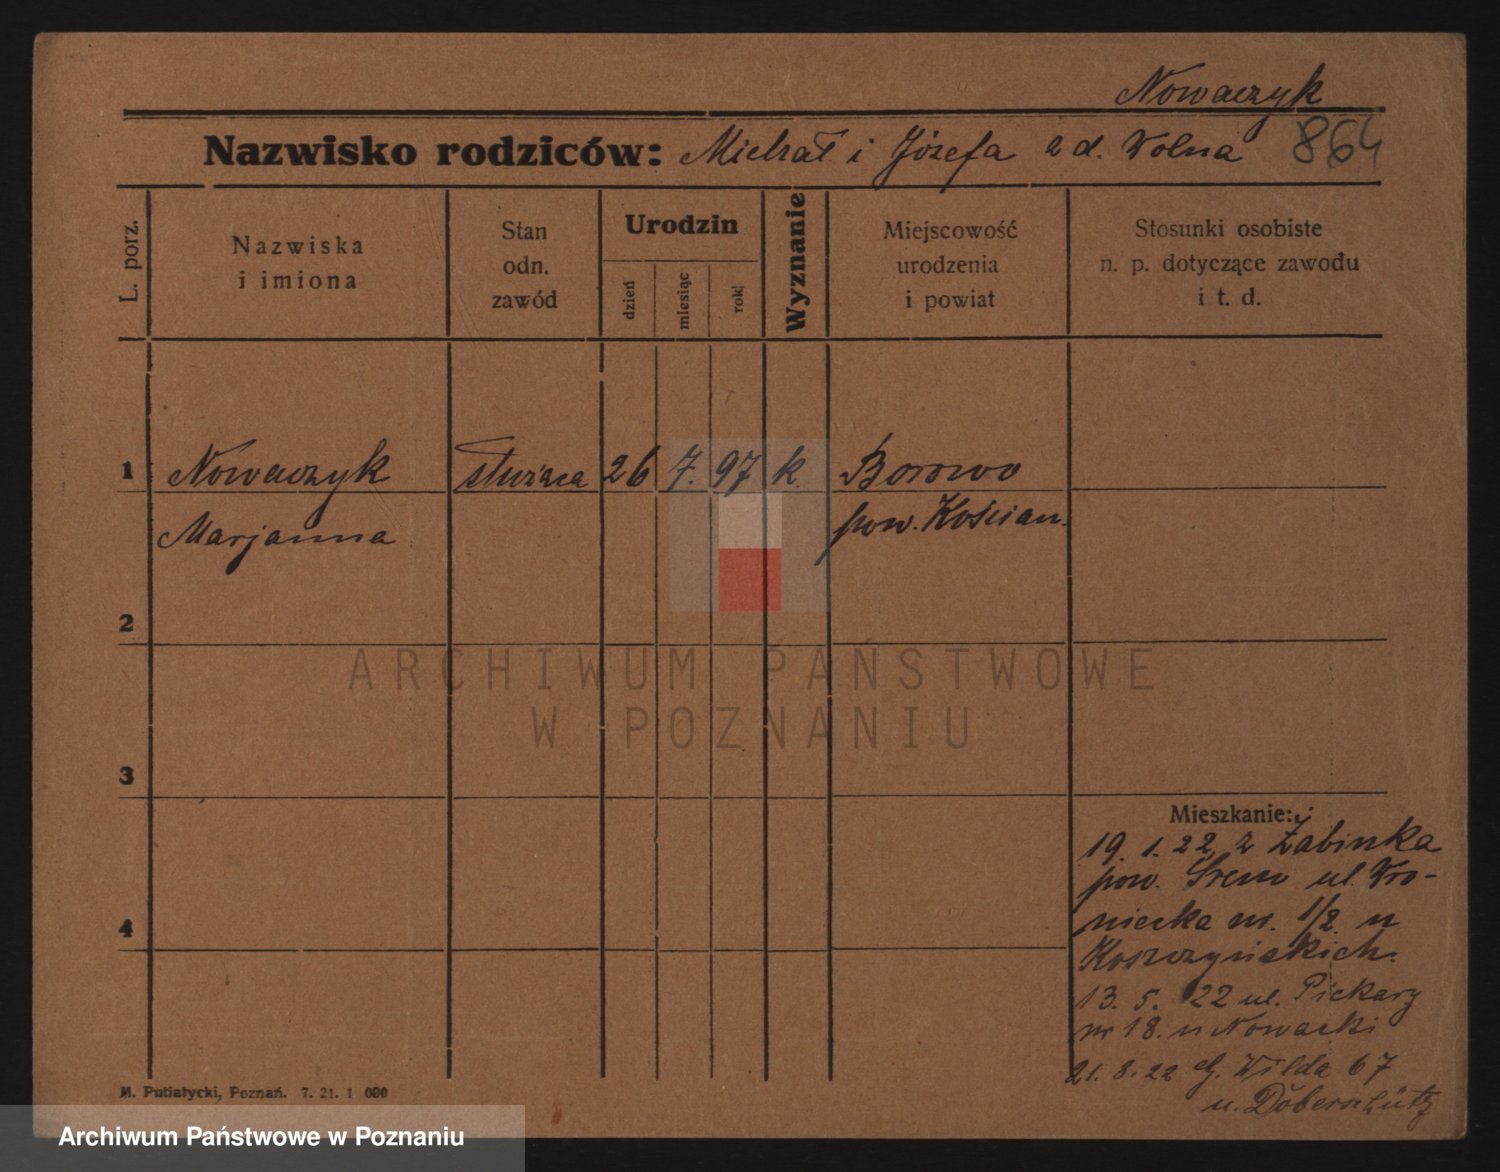 Nowaczyk
Nazwisko rodziców: Michał i Józefa z d. Wolna 864
L. porz.
Nazwiska
i imiona
Stan
odn.
zawód
Urodzin
dzień
miesiąc
rok
Wyznanie
Miejscowość
urodzenia
i powiat
Stosunki osobiste
n. p. dotyczące zawodu
i t. d.
1 Nowaczyk służąca 26 7. 97 k. Borowo
Marjanna pow. Kościan.
2
3
4
ARCHIWUM PAŃSTWOWE
W POZNANIU
Mieszkanie:
19. 1. 22. z Żabinka
pow. Śrem ul. Wro-
niecka nr. 1/2. u
Koszczyńskich.
13. 5. 22 ul. Piekary
nr 18. u Nowacki
21. 8. 22 G. Wilda 67
u. Döberschütz
M. Putiatycki, Poznań. 7. 21. 1 000
Archiwum Państwowe w Poznaniu